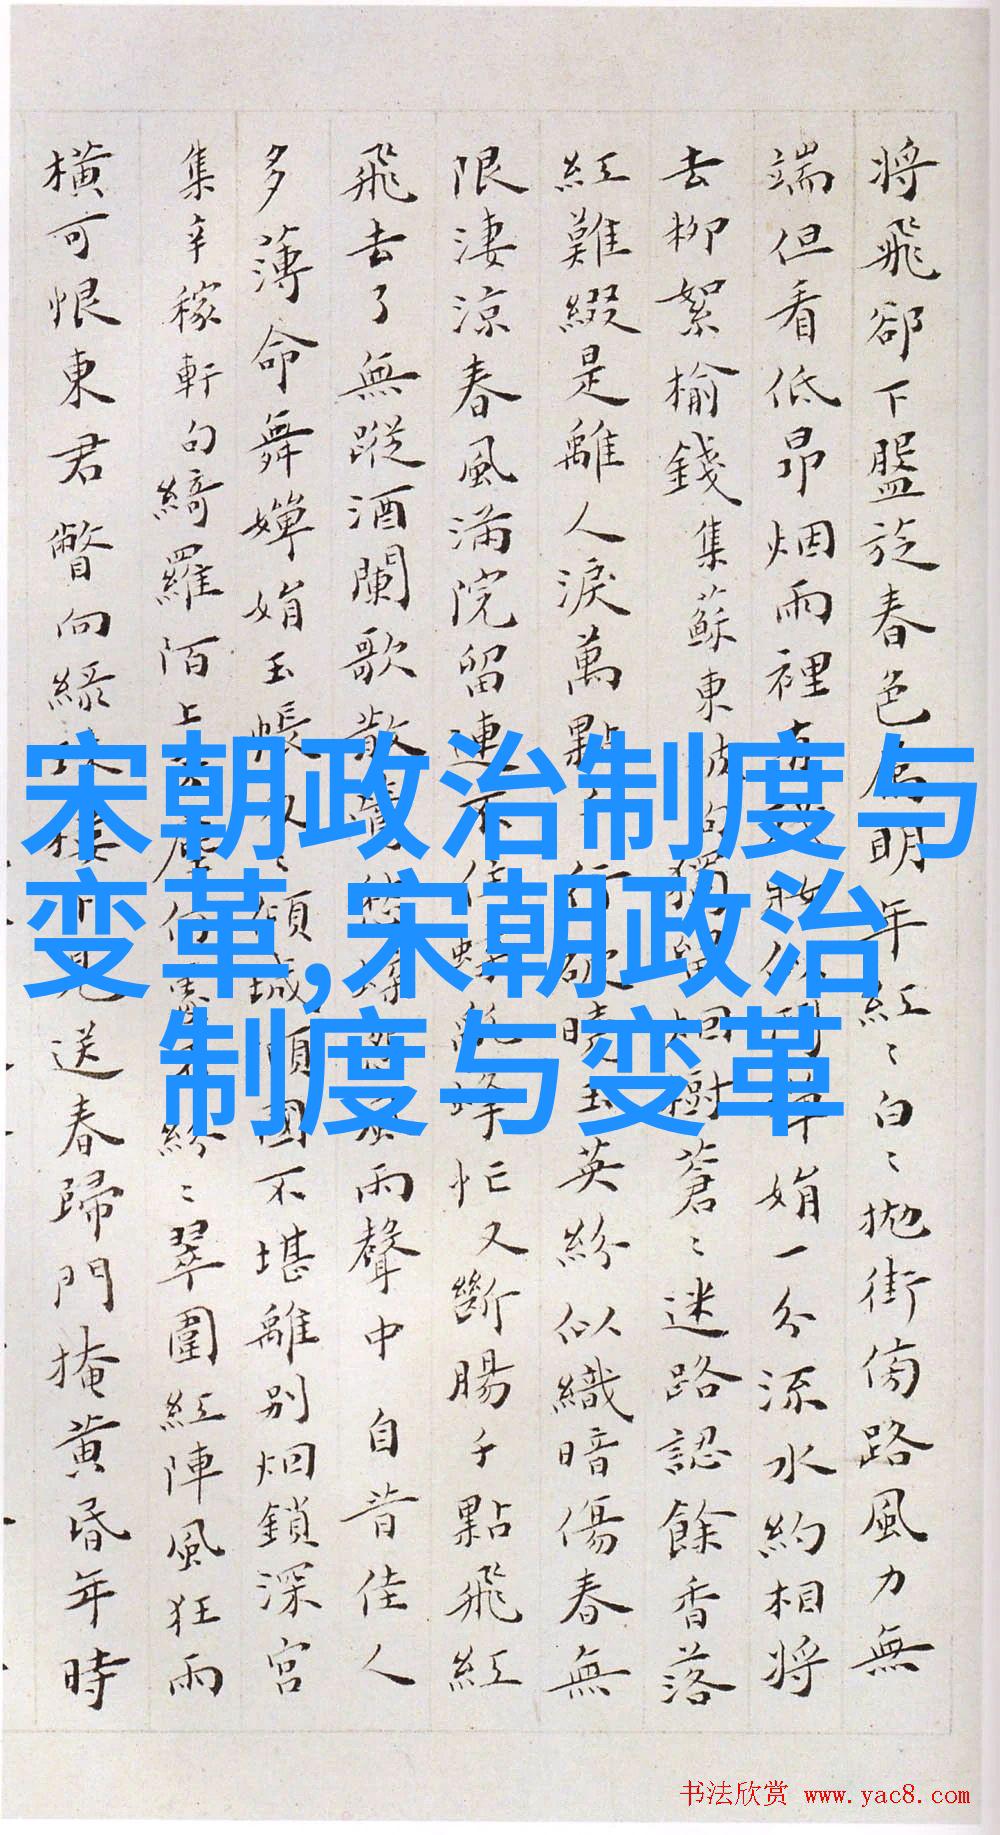 宋朝政治制度与
变革,宋朝政治
制度与变革
將飛卻下盤旋春色爲明年紅〻白〻拋街傍路風力無
端但看低昂烟雨裡娟一分流水約相將
去柳絮榆錢集蘇東坡句獨留樹蒼〻迷路認餘香落
紅難綴是離人淚萬點行欲曉玉英紛似織暗傷春無
限淒涼春風滿院留連不住忙又斷腸千點飛紅
飛去了無蹤酒闌歌散雨聲中 自昔佳人
多薄命舞嬋娟玉帳傾城傾國不堪離別烟鎖深宮
集辛稼軒句綺羅陌上紛〻翠圍紅陣風狂雨
橫可恨東君瞥向綠珠樓見送春歸門掩黃昏年時
书法欣赏 www.yac8.com